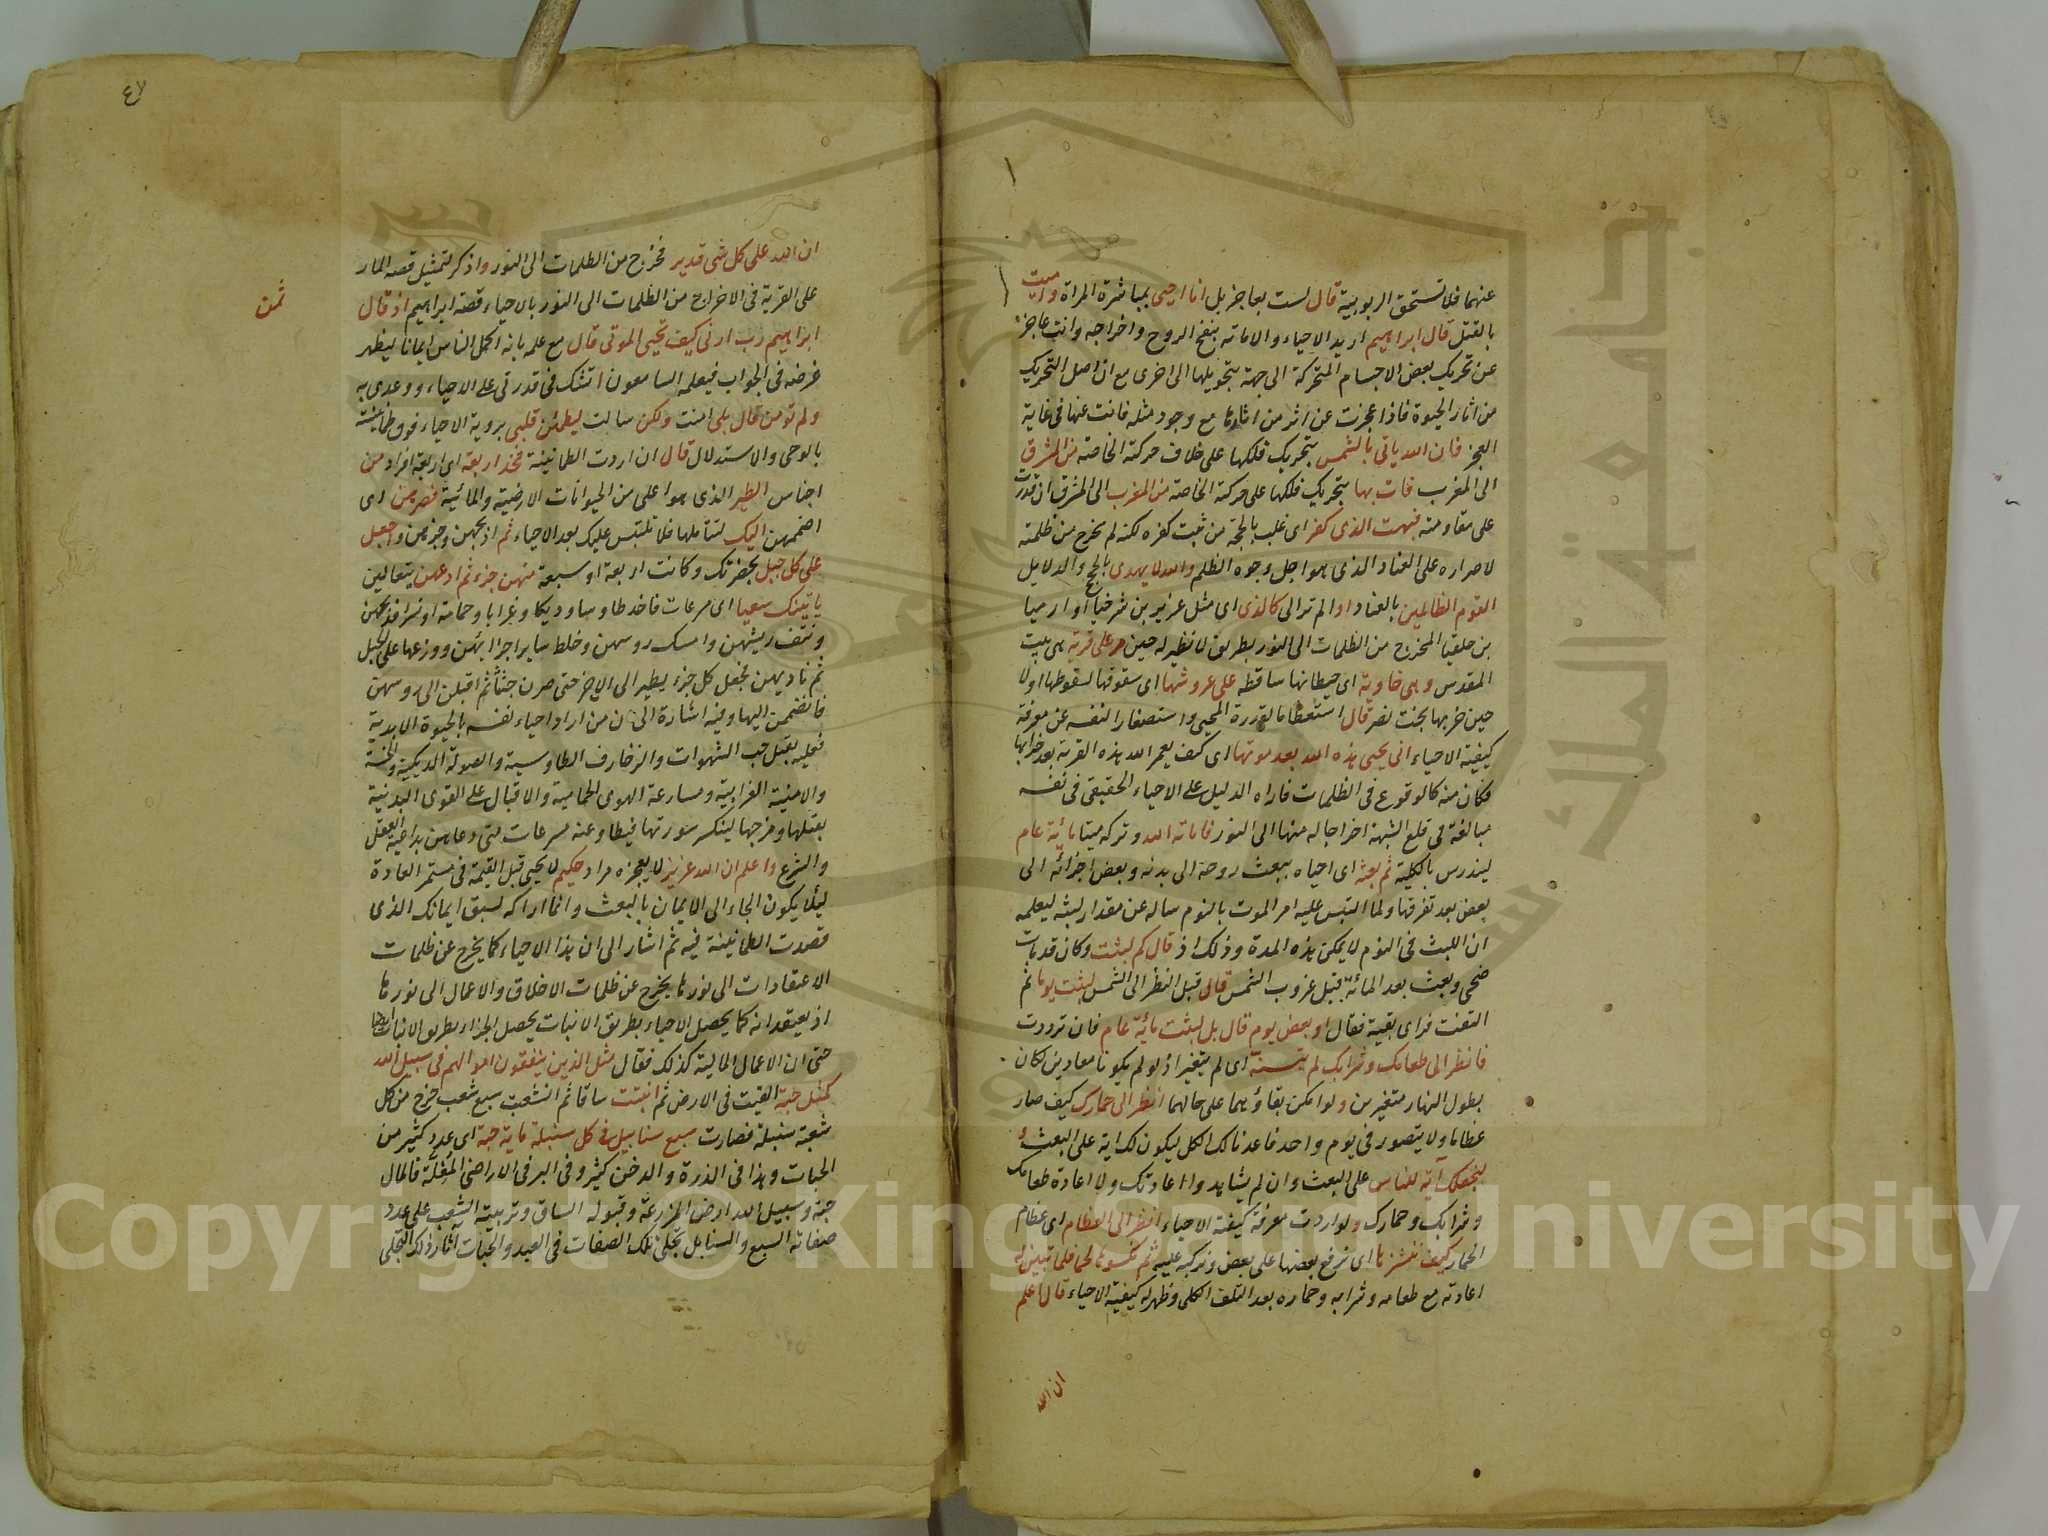 عنهما فلا تستحق الربوبية قال لست بعاجز بل انا احيى بمباشرة المراة واميت
بالقتل قال ابراهيم اريد الاحياء والاماتة بنفخ الروح واخراجه وانت عاجز
عن تحريك بعض الاجسام المتحركة الى جهة بتحويلها الى اخرى مع ان اصل التحريك
من اثار الحيوة فاذا عجزت عن اثر من اثارها مع وجود مثله فانت عنها فى غاية
العجز فان الله ياتى بالشمس بتحريك فلكها على خلاف حركته الخاصة من المشرق
الى المغرب فات بها بتحريك فلكها على حركته الخاصة من المغرب الى المشرق ان قدرت
على مقاومته فبهت الذى كفر اى غلب بالحجة من ثبت كفره لكنه لم يخرج من ظلمته
لاصراره على العناد الذى هو اجل وجوه الظلم والله لا يهدى بالحجج والدلايل
القوم الظالمين بالعناد او الم تر الى كالذى اى مثل عزير بن شرخيا او ارميا
بن حلقيا المخرج من الظلمات الى النور بطريق لا نظير له حين مر على قرية هى بيت
المقدس وهى خاوية اى حيطانها ساقطة على عروشها اى سقوفها لسقوطها اولا
حين خربها بخت نصر قال استعظاما لقدرة المحيى واستصغارا لنفسه عن معرفة
كيفية الاحياء انى يحيى هذه الله بعد موتها اى كيف يعمر الله هذه القرية بعد خرابها
فكان منه كالوقوع فى الظلمات فاراه الدليل على الاحياء الحقيقى فى نفسه
مبالغة فى قلع الشبهة اخراجا له منها الى النور فاماته الله وتركه ميتا مائة عام
ليندرس بالكلية ثم بعثه اى احياه ببعث روحه الى بدنه وبعض اجزائه الى
بعض بعد تفرقها ولما التبس عليه امر الموت بالنوم ساله عن مقدار لبثه ليعلمه
ان اللبث فى النوم لا يمكن هذه المدة وذلك اذ قال كم لبثت وكان قد مات
ضحى وبعث بعد المائة قبل غروب الشمس قال قبل النظر الى الشمس لبثت يوما ثم
التفت فراى بقية فقال او بعض يوم قال بل لبثت مائة عام فان ترددت
فانظر الى طعامك وشرابك لم يتسنه اى لم يتغير اذ لو لم يكونا معادين لكان
بطول النهار متغيرين ولو امكن بقاؤهما على حالهما انظر الى حمارك كيف صار
عظاما ولا يتصور فى يوم واحد فاعدنا لك الكل ليكون لك اية على البعث و
لنجعلك آية للناس على البعث وان لم يشاهدوا اعادتك ولا اعادة طعامك
وشرابك وحمارك ولو اردت معرفة كيفية الاحياء انظر الى العظام اى عظام
الحمار كيف ننشزها اى نرفع بعضها على بعض ونركبه عليه ثم نكسوها لحما فلما تبين له
اعادته مع طعامه وشرابه وحماره بعد التلف الكلى وظهر له كيفية الاحياء قال اعلم
ان الله
٤٧
ان الله على كل شى قدير فخرج من الظلمات الى النور واذكر لتمثيل قصة المار
على القرية فى الاخراج من الظلمات الى النور بالاحياء قصة ابراهيم اذ قال
ثمن
ابراهيم رب ارنى كيف تحيى الموتى قال مع علمه بانه اكمل الناس ايمانا ليظهر
غرضه فى الجواب فيعلمه السامعون اتشك فى قدرتى على الاحياء ووعدى به
ولم تومن قال بلى امنت ولكن سالت ليطمئن قلبى بروية الاحياء فوق طمانينته
بالوحى والاستدلال قال ان اردت الطمانينة فخذ اربعة اى اربعة افراد من
اجناس الطير الذى هو اعلى من الحيوانات الارضية والمائية فصرهن اى
اضممهن اليك لتتاملها فلا تلتبس عليك بعد الاحياء ثم اذبحهن وجزهن واجعل
على كل جبل بحضرتك وكانت اربعة او سبعة منهن جزء ثم ادعهن بتعالين
ياتينك سعيا اى مسرعات فاخذ طاوسا وديكا وغرابا وحمامة او نسرا فذبحهن
ونتف ريشهن وامسك روسهن وخلط ساير اجزائهن ووزعها على الجبل
ثم ناديهن فجعل كل جزء يطير الى الاخر حتى صرن جثثا ثم اقبلن الى روسهن
فانضممن اليها وفيه اشارة الى ان من اراد احياء نفسه بالحيوة الابدية
فعليه بقتل حب الشهوات والزخارف الطاوسية والصولة الديكية والخسة
والامنية الغرابية ومسارعة الهوى الحمامية والاقبال على القوى البدنية
بقتلها ومزجها لينكسر سورتها فيطاوعنه مسرعات متى دعاهن بداعية العقل
والشرع واعلم ان الله عزيز لا يعجزه مراد حكيم لا يحيى قبل القيمة فى مستمر العادة
ليلا يكون الجاء الى الايمان بالبعث وانما اراكه لسبق ايمانك الذى
قصدت الطمانينة فيه ثم اشار الى ان هذا الاحياء كما يخرج عن ظلمات
الاعتقادات الى نورها يخرج عن ظلمات الاخلاق والاعمال الى نورها
اذ يعتقد انه كما يحصل الاحياء بطريق الانبات يحصل الجزاء بطريق الانبات ايضا
حتى ان الاعمال المالية كذلك فقال مثل الذين ينفقون اموالهم فى سبيل الله
كمثل حبة القيت فى الارض ثم انبتت ساقا ثم انشعبت سبع شعب خرج من كل
شعبة سنبلة فصارت سبع سنابيل فى كل سنبلة ماية حبة اى عدد كثير من
الحبات وهذا فى الذرة والدخن كثير وفى البر فى الاراضى المغلة فالمال
حبة وسبيل الله ارض المزرعة وقبوله الساق وتربيته الشعب على عدد
صفاته السبع والسنابل تجلى تلك الصفات فى العبد والحبات آثار ذلك التجلى
Copyright © King Saud University
جامعة الملك سعود